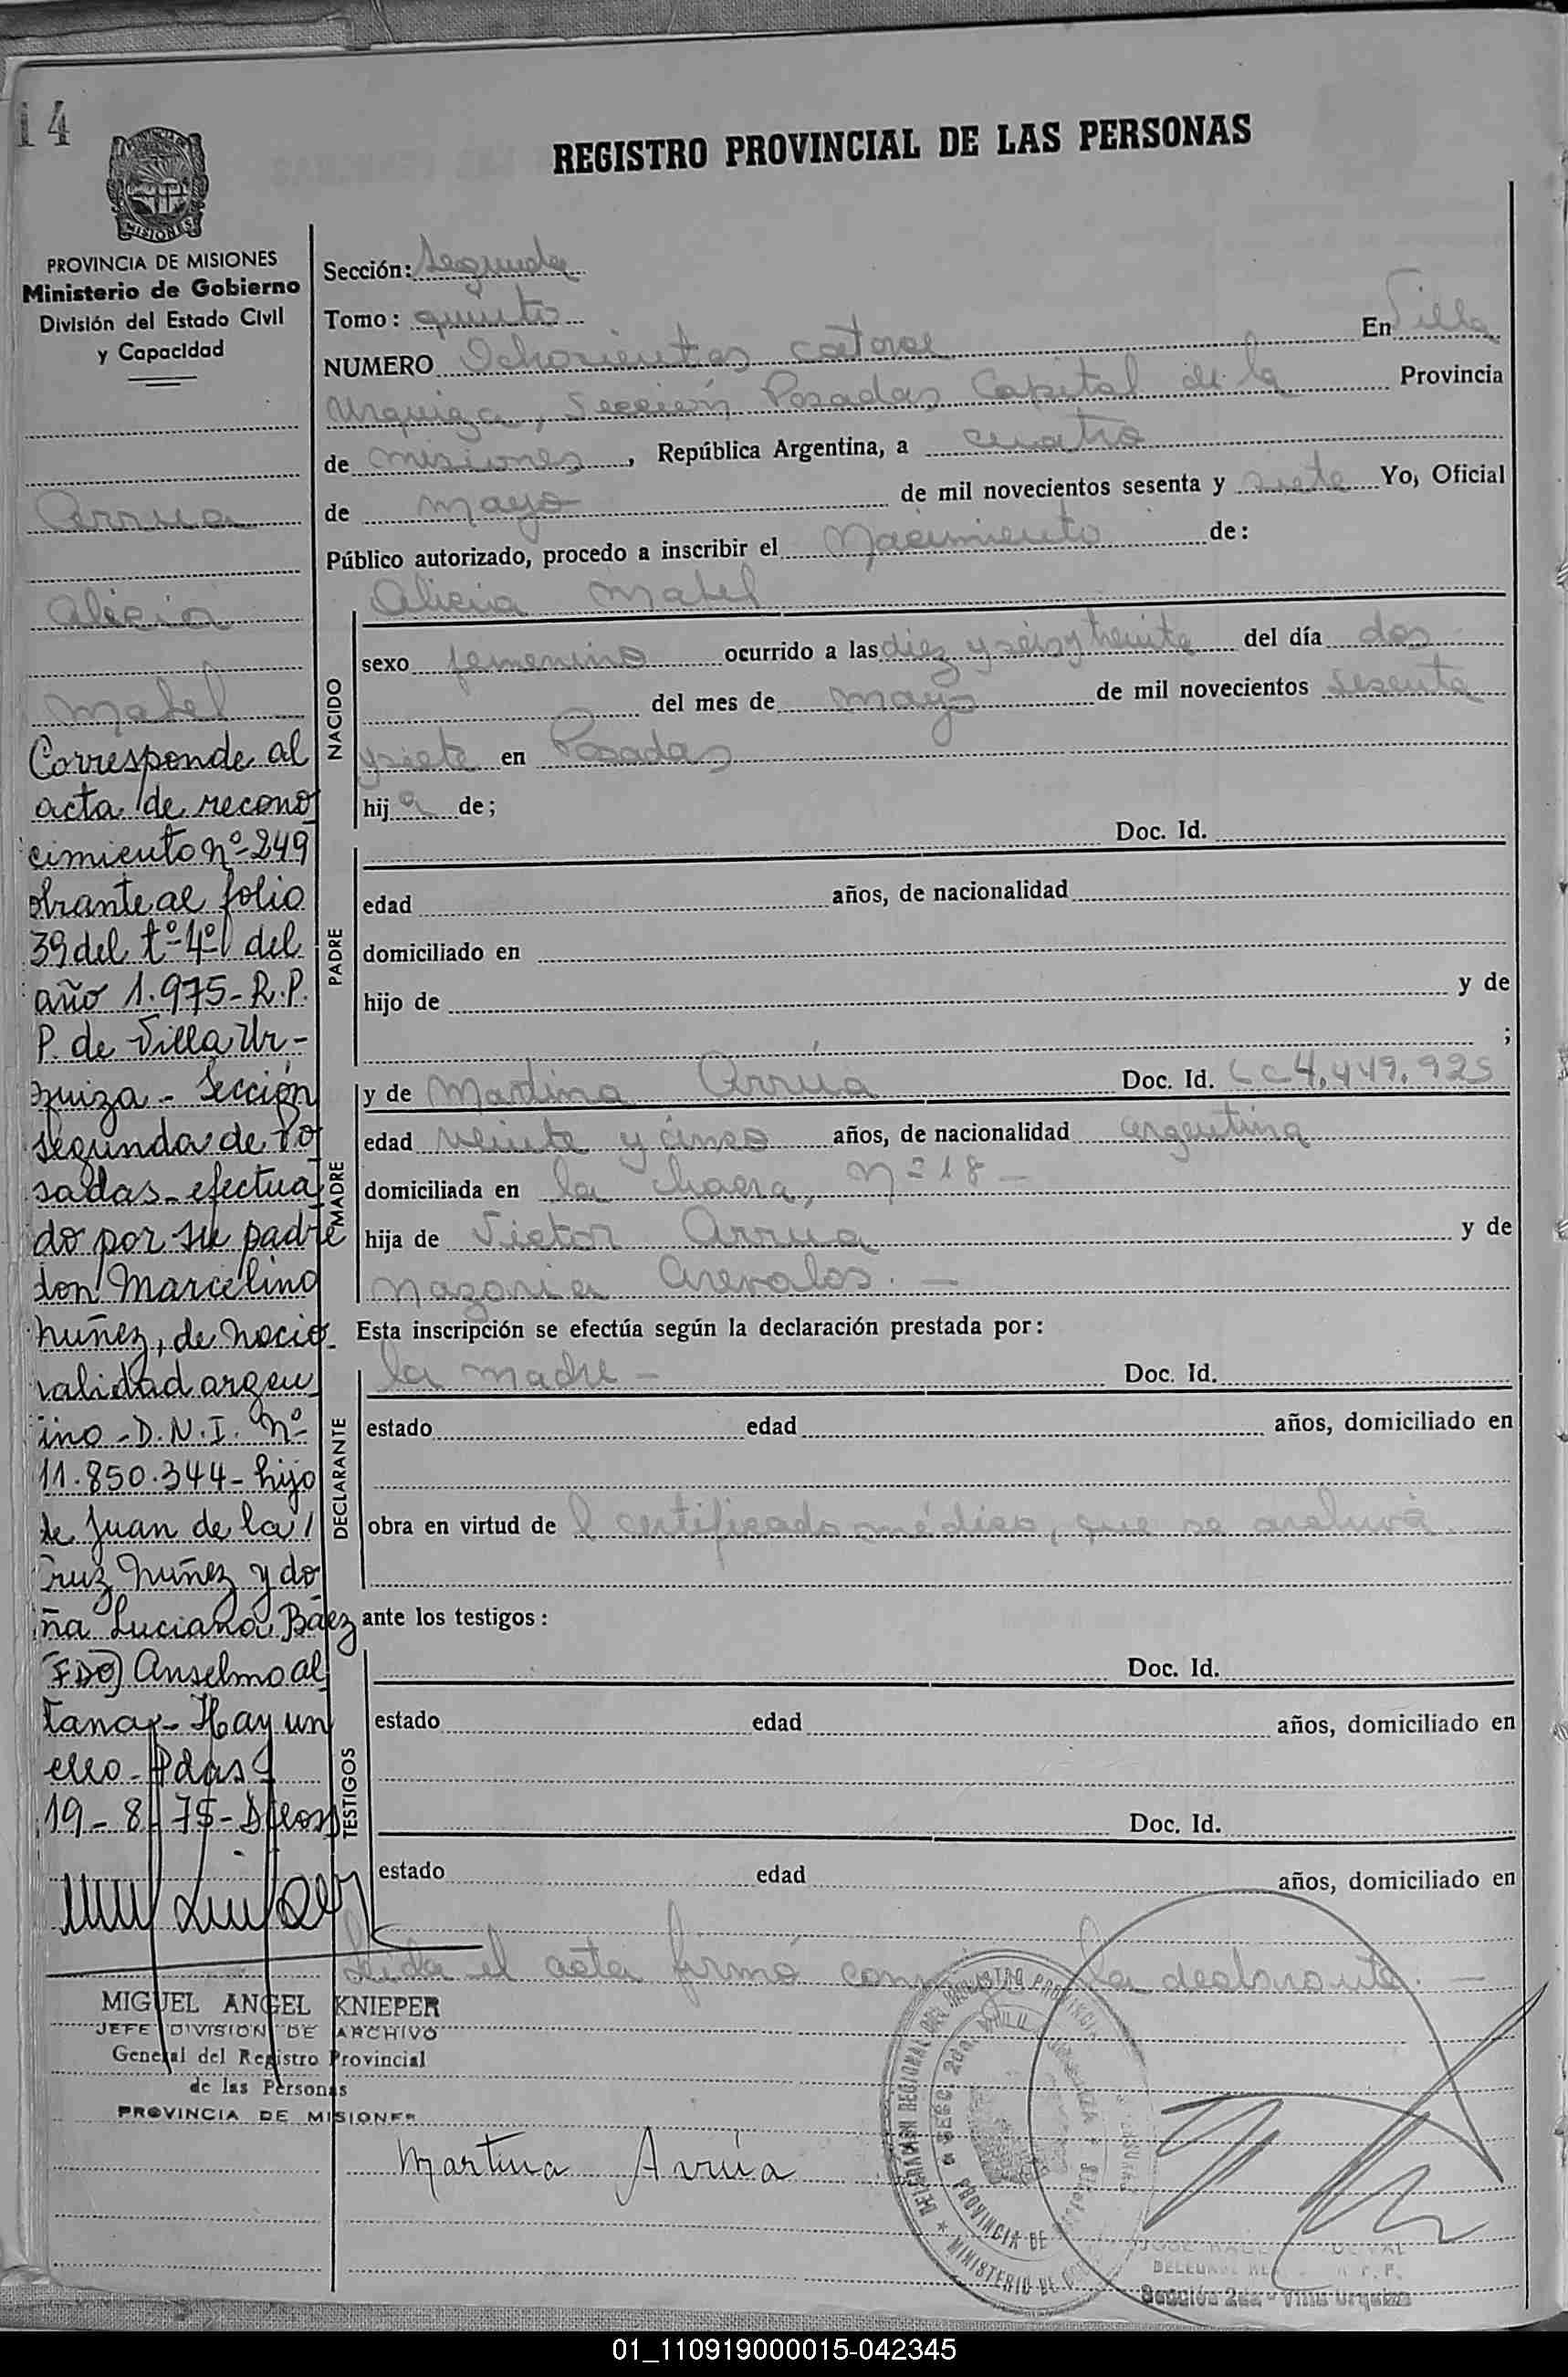 14
REGISTRO PROVINCIAL DE LAS PERSONAS
MISIONES
PROVINCIA DE MISIONES
Ministerio de Gobierno
División del Estado Civil
y Capacidad
Arrua
Alicia
Mabel
Corresponde al
acta de recono
cimiento nº 249
obrante al folio
39 del tº 4º del
año 1.975- R.P.
P. de Villa Ur-
quiza - Sección
segunda de Po
sadas - efectua
do por su padre
don Marcelino
Nuñez, de nacio
nalidad argen
ino - D.N.I. nº
11.850.344 - hijo
de Juan de la
Cruz Nuñez y do
ña Luciana Báez
FDO) Anselmo al
tana - Hay un
ello - Pdas
19 - 8 - 75 -
MIGUEL ANGEL KNIEPER
JEFE DIVISION DE ARCHIVO
General del Registro Provincial
de las Personas
PROVINCIA DE MISIONES
Sección: Segunda
Tomo: quinto
NUMERO Ochocientos catorce En Villa
Urquiza, Sección Posadas Capital de la Provincia
de Misiones, República Argentina, a cuatro
de mayo de mil novecientos sesenta y siete Yo, Oficial
Público autorizado, procedo a inscribir el Nacimiento de:
NACIDO
Alicia Mabel
sexo femenino ocurrido a las diez y seis y treinta del día dos
del mes de mayo de mil novecientos sesenta
y siete en Posadas
hija de;
PADRE
Doc. Id.
edad años, de nacionalidad
domiciliado en
hijo de y de
;
MADRE
y de Martina Arrúa Doc. Id. LC 4.449.925
edad veinte y cinco años, de nacionalidad argentina
domiciliada en la chacra, Nº 18 -
hija de Victor Arrua y de
Nazaria Arevalos. -
Esta inscripción se efectúa según la declaración prestada por:
DECLARANTE
la madre - Doc. Id.
estado edad años, domiciliado en
obra en virtud de l certificado médico, que se archiva
ante los testigos:
TESTIGOS
Doc. Id.
estado edad años, domiciliado en
Doc. Id.
estado edad años, domiciliado en
Leida el acta firmó conmigo la declarante. -
Martina Arrúa
Sección 2da - Villa Urquiza
01_110919000015-042345